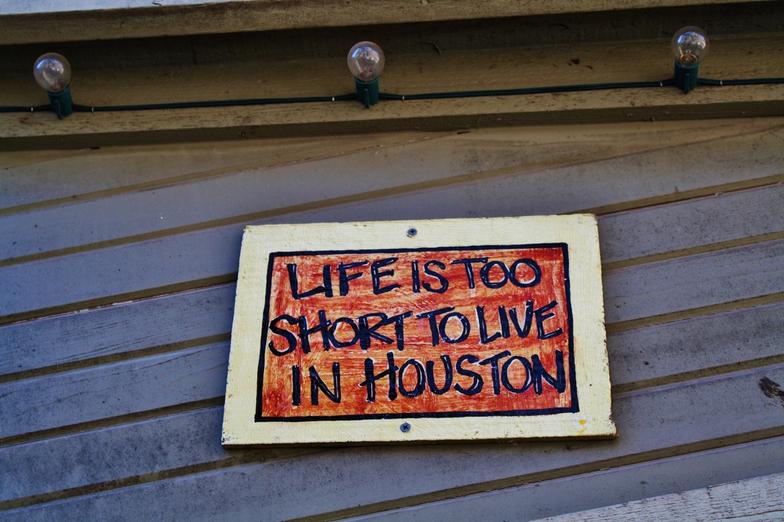 LIFE IS TOO
SHORT TO LIVE
IN HOUSTON